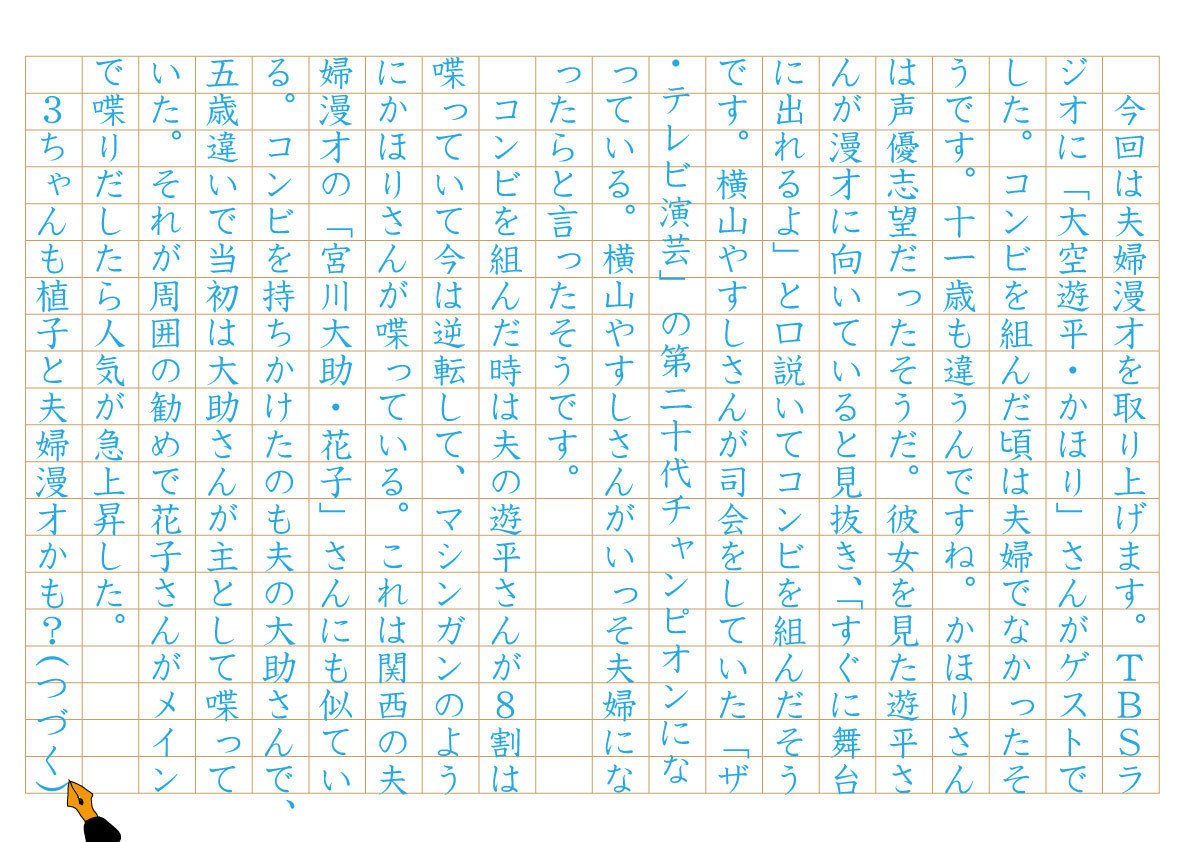 今回は夫婦漫才を取り上げます。ＴＢＳラ
ジオに「大空遊平・かほり」さんがゲストで
した。コンビを組んだ頃は夫婦でなかったそ
うです。十一歳も違うんですね。かほりさん
は声優志望だったそうだ。彼女を見た遊平さ
んが漫才に向いていると見抜き、「すぐに舞台
に出れるよ」と口説いてコンビを組んだそう
です。横山やすしさんが司会をしていた「ザ
・テレビ演芸」の第二十代チャンピオンにな
っている。横山やすしさんがいっそ夫婦にな
ったらと言ったそうです。
コンビを組んだ時は夫の遊平さんが８割は
喋っていて今は逆転して、マシンガンのよう
にかほりさんが喋っている。これは関西の夫
婦漫才の「宮川大助・花子」さんにも似てい
る。コンビを持ちかけたのも夫の大助さんで、
五歳違いで当初は大助さんが主として喋って
いた。それが周囲の勧めで花子さんがメイン
で喋りだしたら人気が急上昇した。
３ちゃんも植子と夫婦漫才かも？（つづく）